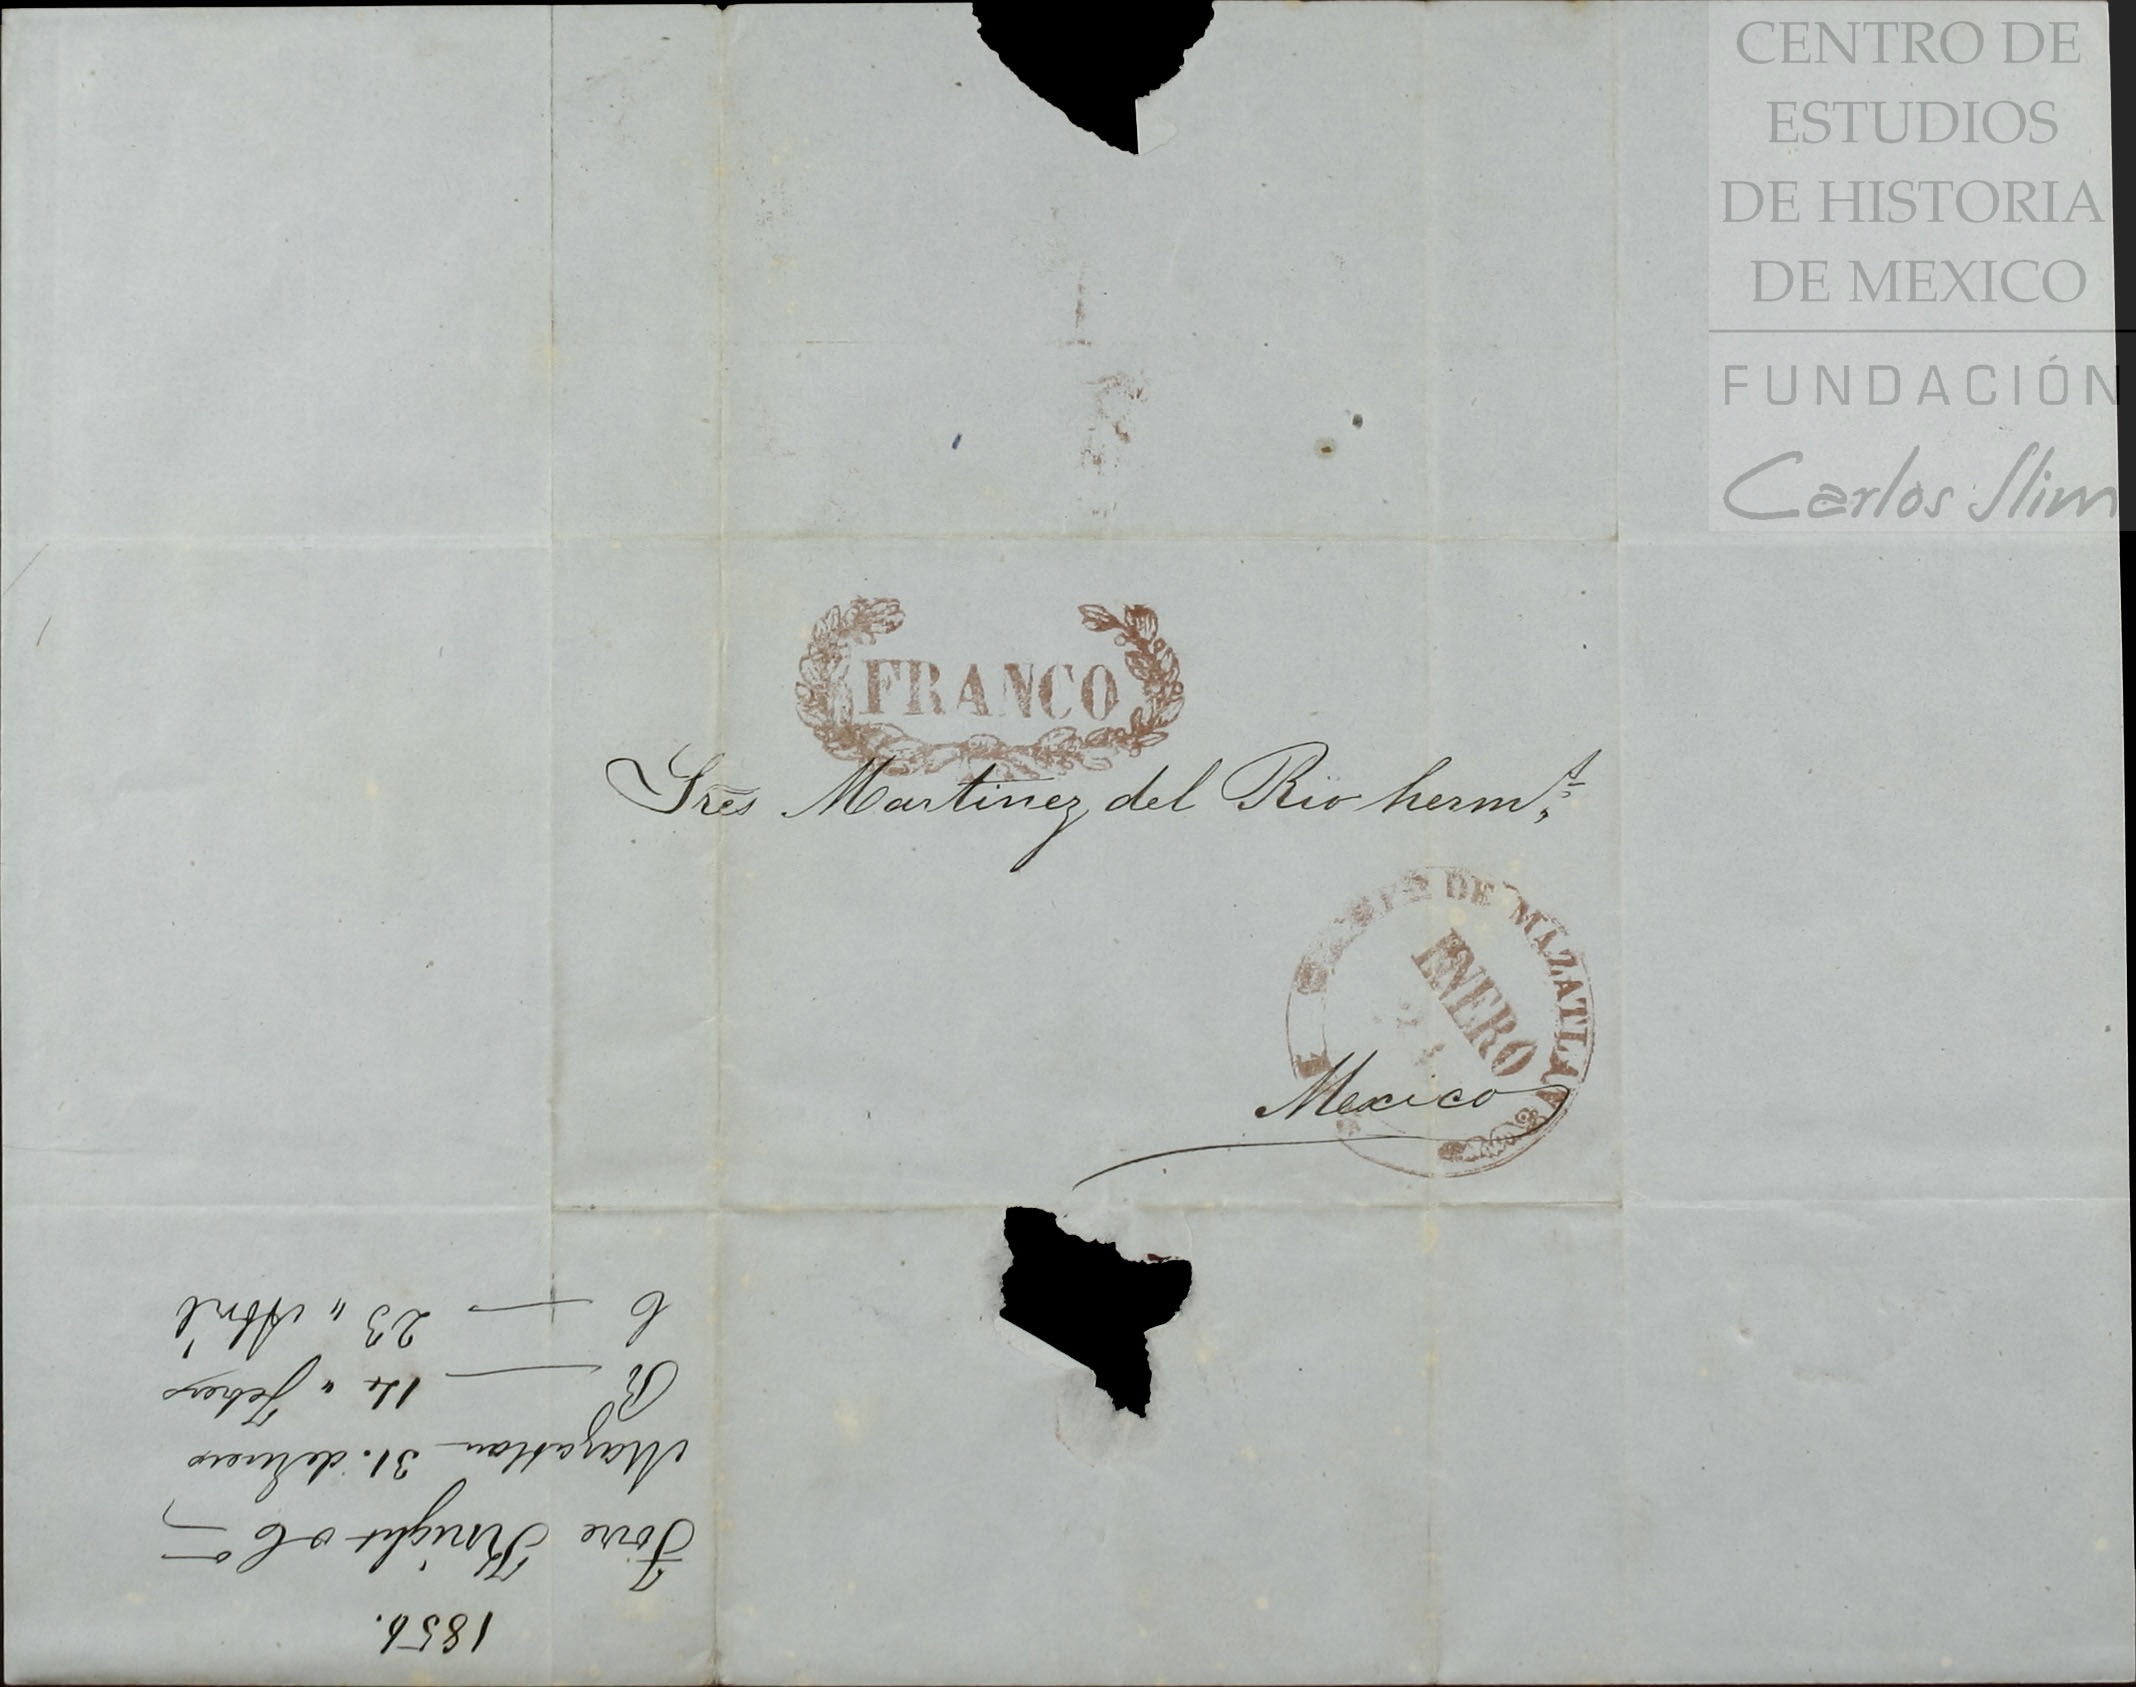 CENTRO DE
ESTUDIOS
DE HISTORIA
DE MEXICO
FUNDACIÓN
Carlos Slim
FRANCO
Sres Martinez del Rio herm.s
DE MAZATLAN
ENERO
Mexico
1856.
Torre Knight & Co
Mazatlan 31. de Enero
R 14 " Febrero
C 23 " Abril